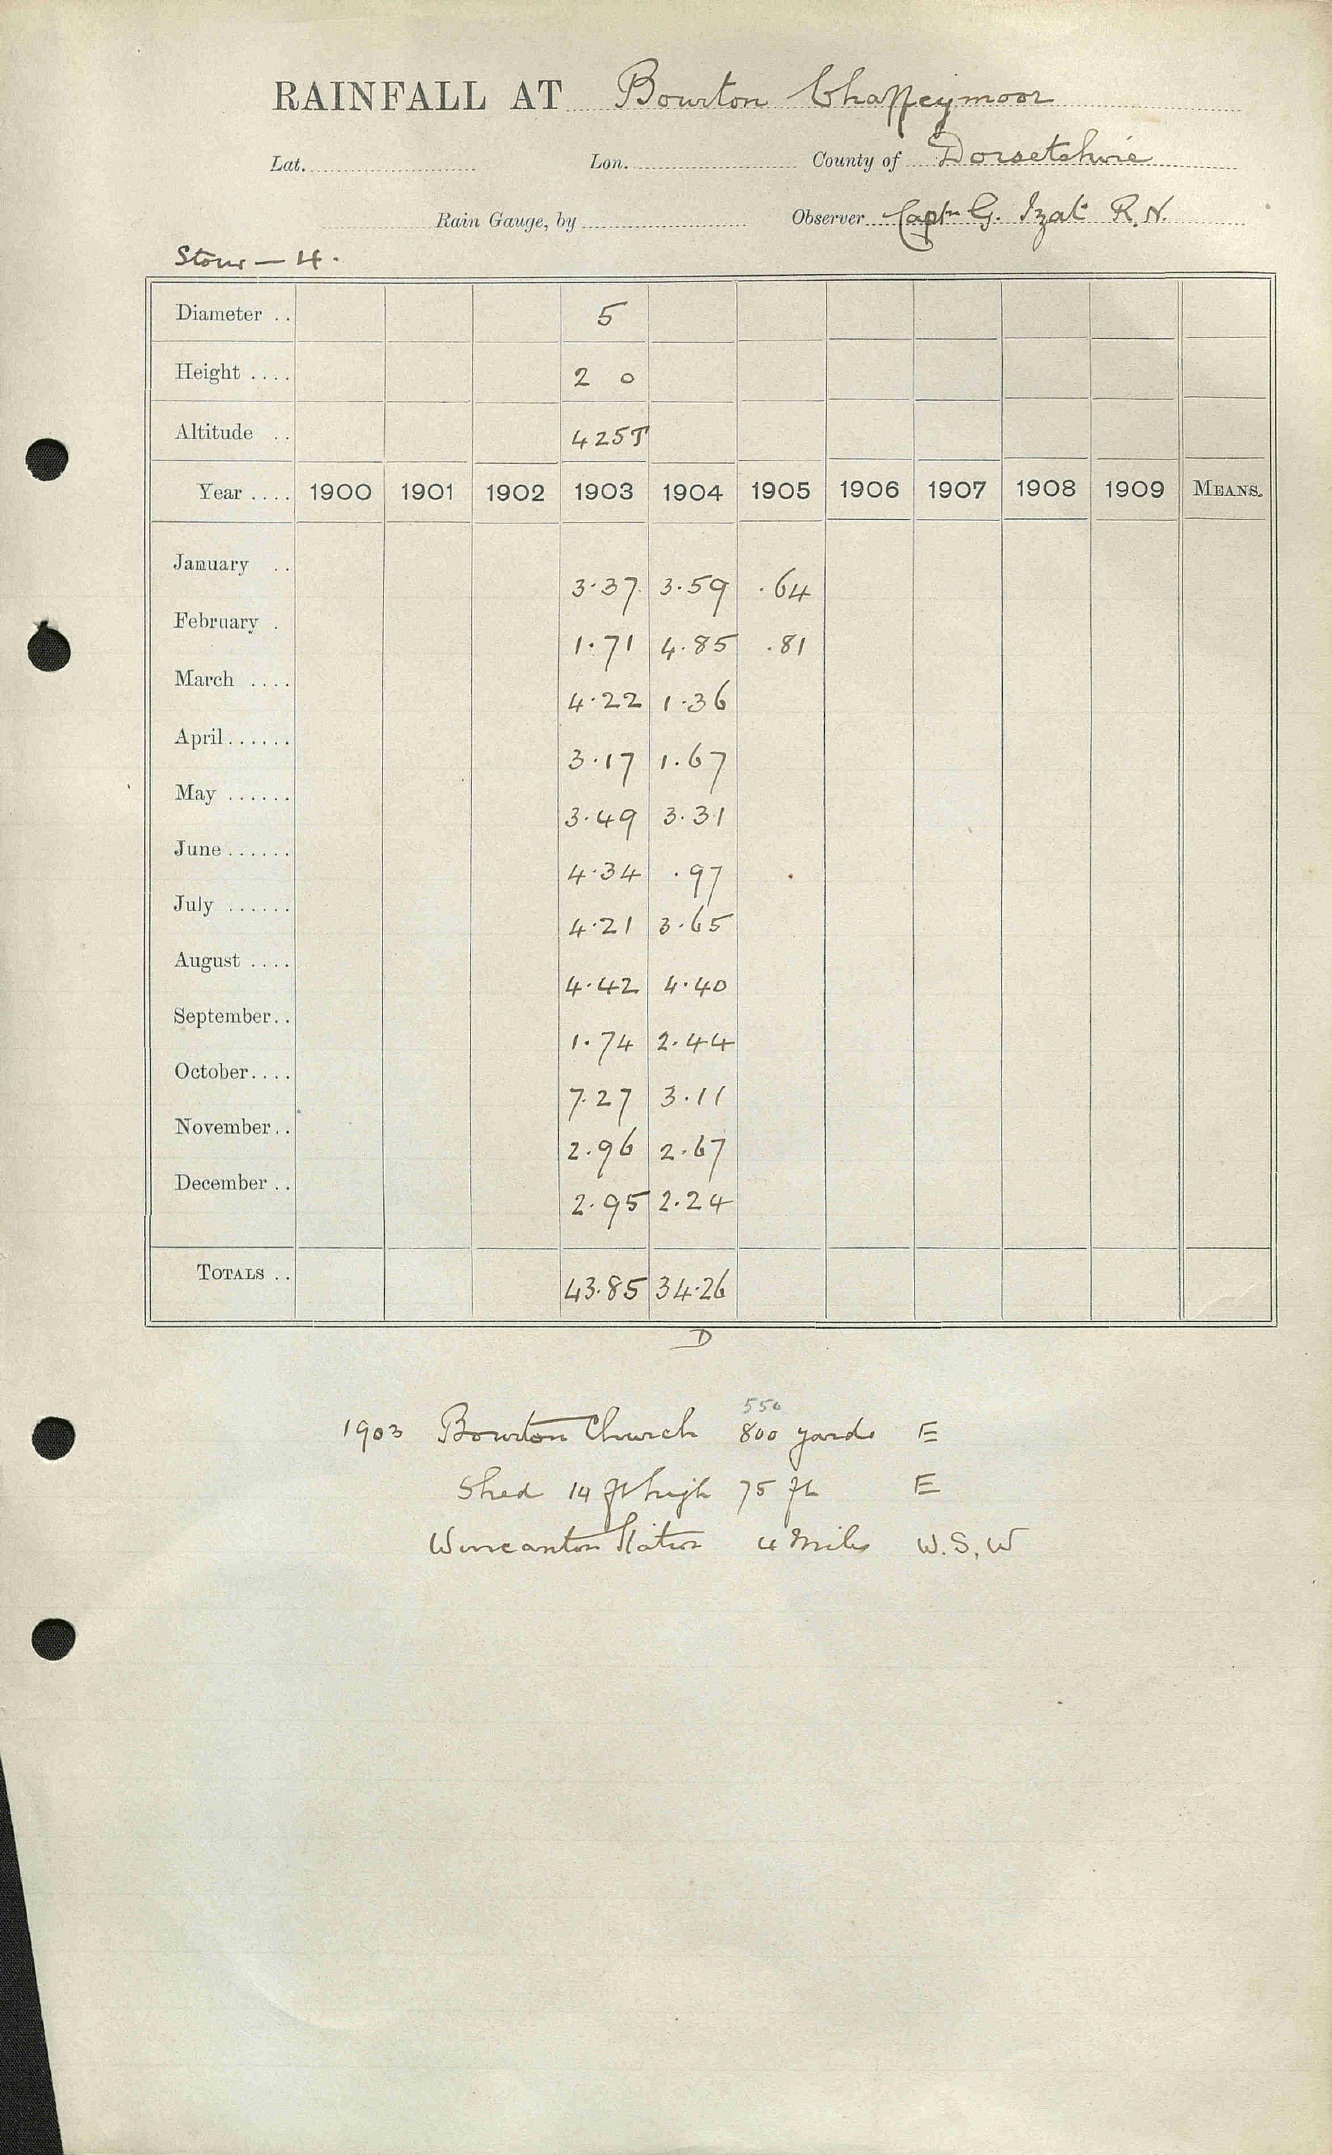 RAINFALL AT Bourton Chaffeymoor
Lat. Lon. County of Dorsetshire
Rain Gauge, by Observer Captn G. Izat R.N.
Stour — 4.
Diameter .. 5
Height .... 2 0
Altitude .. 425T
Year .... 1900 1901 1902 1903 1904 1905 1906 1907 1908 1909 MEANS.
January .. 3.37 3.59 .64
February . 1.71 4.85 .81
March .... 4.22 1.36
April...... 3.17 1.67
May ...... 3.49 3.31
June...... 4.34 .97
July ...... 4.21 3.65
August .... 4.42 4.40
September.. 1.74 2.44
October.... 7.27 3.11
November.. 2.96 2.67
December .. 2.95 2.24
TOTALS .. 43.85 34.26
D
550
1903 Bourton Church 800 yards E
Shed 14 ft high 75 ft E
Wincanton Station 4 Miles W.S.W